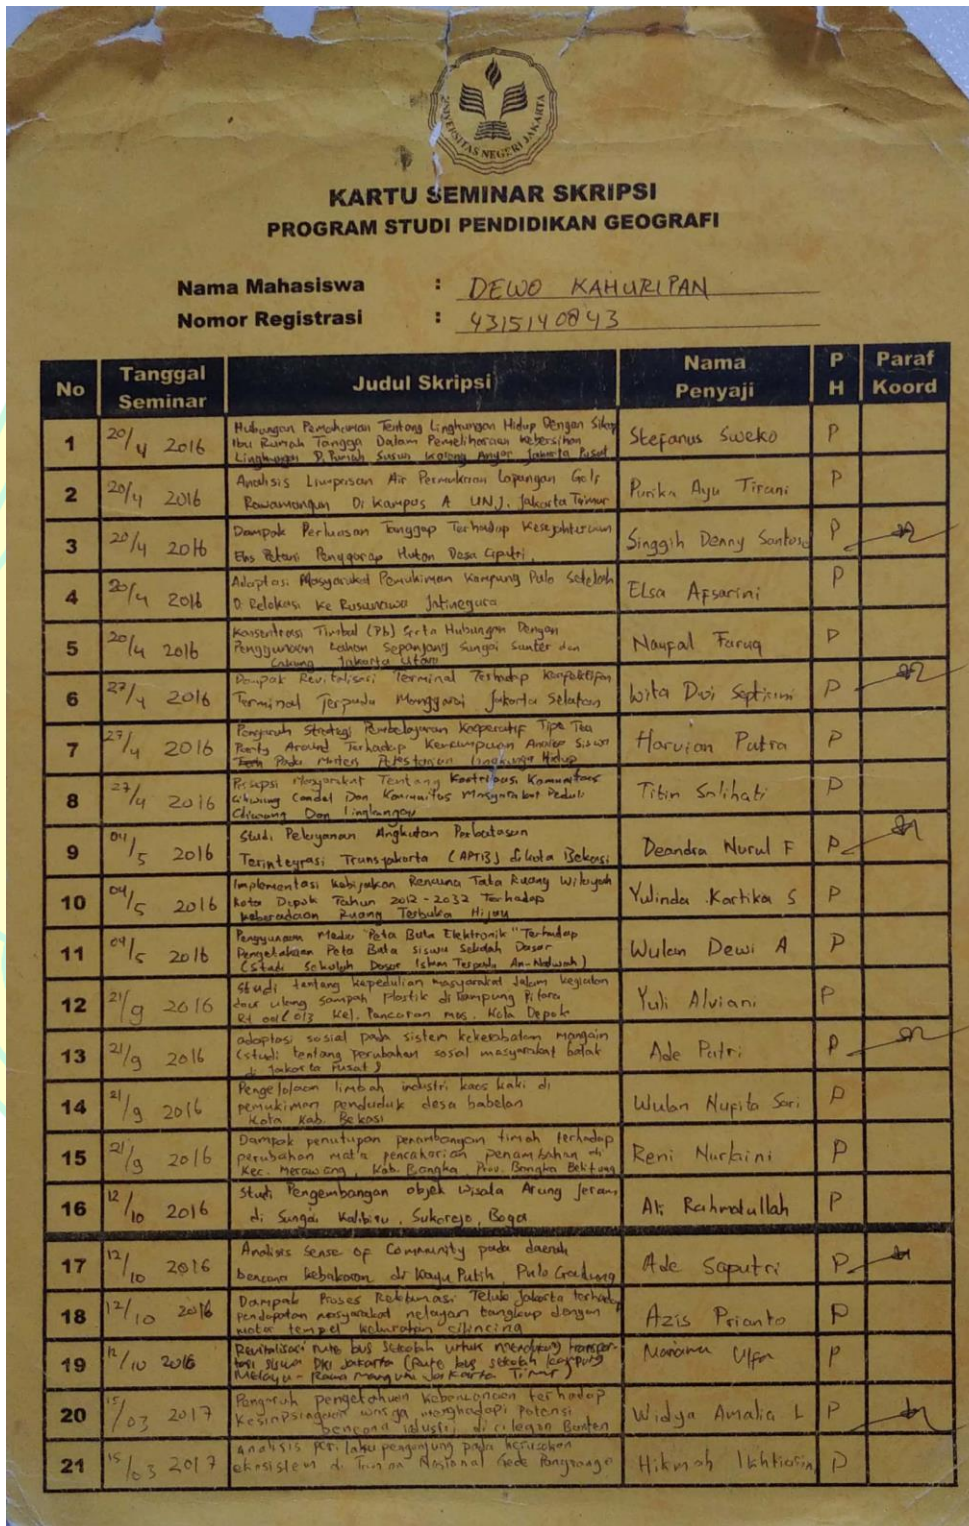 UNIVERSITAS NEGERI JAKARTA
KARTU SEMINAR SKRIPSI
PROGRAM STUDI PENDIDIKAN GEOGRAFI
Nama Mahasiswa : DEWO KAHURIPAN
Nomor Registrasi : 4315140843
No Tanggal Seminar Judul Skripsi Nama Penyaji P H Paraf Koord
1 20/4 2016 Hubungan Pemahaman Tentang Lingkungan Hidup Dengan Sikap
Ibu Rumah Tangga Dalam Pemeliharaan Kebersihan
Lingkungan Di Rumah Susun Karang Anyar Jakarta Pusat
Stefanus Sweko P
2 20/4 2016 Analisis Limpasan Air Permukaan Lapangan Golf
Rawamangun Di Kampus A UNJ. Jakarta Timur
Purika Ayu Tirani P
3 20/4 2016 Dampak Perluasan Tanggap Terhadap Kesejahteraan
Eks Petani Penggarap Hutan Desa Ciputri
Singgih Denny Santoso P
4 20/4 2016 Adaptasi Masyarakat Pemukiman Kampung Pulo Setelah
Di Relokasi Ke Rusunawa Jatinegara
Elsa Afsarini P
5 20/4 2016 Konsentrasi Timbal (Pb) Serta Hubungan Dengan
Penggunaan Lahan Sepanjang Sungai Sunter dan
Cakung Jakarta Utara
Naufal Faruq P
6 27/4 2016 Dampak Revitalisasi Terminal Terhadap
Terminal Terpadu Manggarai Jakarta Selatan
Wita Dwi Septiani P
7 27/4 2016 Pengaruh Strategi Pembelajaran Kooperatif Tipe Tea
Party Around Terhadap Kemampuan Analisis Siswa
Pada Materi Pelestarian Lingkungan Hidup
Harvian Putra P
8 27/4 2016 Persepsi Masyarakat Tentang Kontribusi Komunitas
Ciliwung Condet Dan Komunitas Masyarakat Peduli
Ciliwung Dan Lingkungan
Titin Solihati P
9 04/5 2016 Studi Pelayanan Angkutan Perbatasan
Terintegrasi Transjakarta (APTB) di kota Bekasi
Deandra Nurul F P
10 04/5 2016 Implementasi Kebijakan Rencana Tata Ruang Wilayah
Kota Depok Tahun 2012 - 2032 Terhadap
Keberadaan Ruang Terbuka Hijau
Yulinda Kartika S P
11 04/5 2016 Penggunaan Media "Peta Buta Elektronik" Terhadap
Pengetahuan Peta Buta siswa Sekolah Dasar
(Studi Sekolah Dasar Islam Terpadu An-Nadwah)
Wulan Dewi A P
12 21/9 2016 Studi tentang kepedulian masyarakat dalam kegiatan
daur ulang sampah plastik di Kampung Pitara
Rt 001/013 Kel. Pancoran mas. Kota Depok
Yuli Alviani P
13 21/9 2016 adaptasi sosial pada sistem kekerabatan mangain
(studi tentang perubahan sosial masyarakat batak
di Jakarta Pusat)
Ade Putri P
14 21/9 2016 Pengelolaan limbah industri kaos kaki di
pemukiman penduduk desa babelan
Kota Kab. Bekasi
Wulan Nupita Sari P
15 21/9 2016 Dampak penutupan penambangan timah terhadap
perubahan mata pencaharian penambahan di
Kec. Merawang, Kab. Bangka, Prov. Bangka Belitung
Reni Nurlaini P
16 12/10 2016 Studi Pengembangan objek wisata Arung Jeram
di Sungai Kalibiru, Sukorejo, Bogor
Ali Rahmatullah P
17 12/10 2016 Analisis Sense of Community pada daerah
bencana kebakaran di Kayu Putih, Pulo Gadung
Ade Saputri P
18 12/10 2016 Dampak Proses Reklamasi Teluk Jakarta terhadap
Pendapatan masyarakat nelayan tangkap dengan
motor tempel kelurahan cilincing
Azis Prianto P
19 12/10 2016 Revitalisasi rute bus sekolah untuk mendukung transpor-
tasi siswa DKI Jakarta (Rute bus sekolah kampung
Melayu - Rawa mangun Jakarta Timur)
Ulfa P
20 15/03 2017 Pengaruh pengetahuan kebencanaan terhadap
Kesiapsiagaan warga menghadapi Potensi
bencana industri di cilegon Banten
Widya Amalia L P
21 15/03 2017 analisis perilaku pengunjung pada kerusakan
ekosistem di Taman Nasional Gede Pangrango
Hikmah Ikhtiarin P